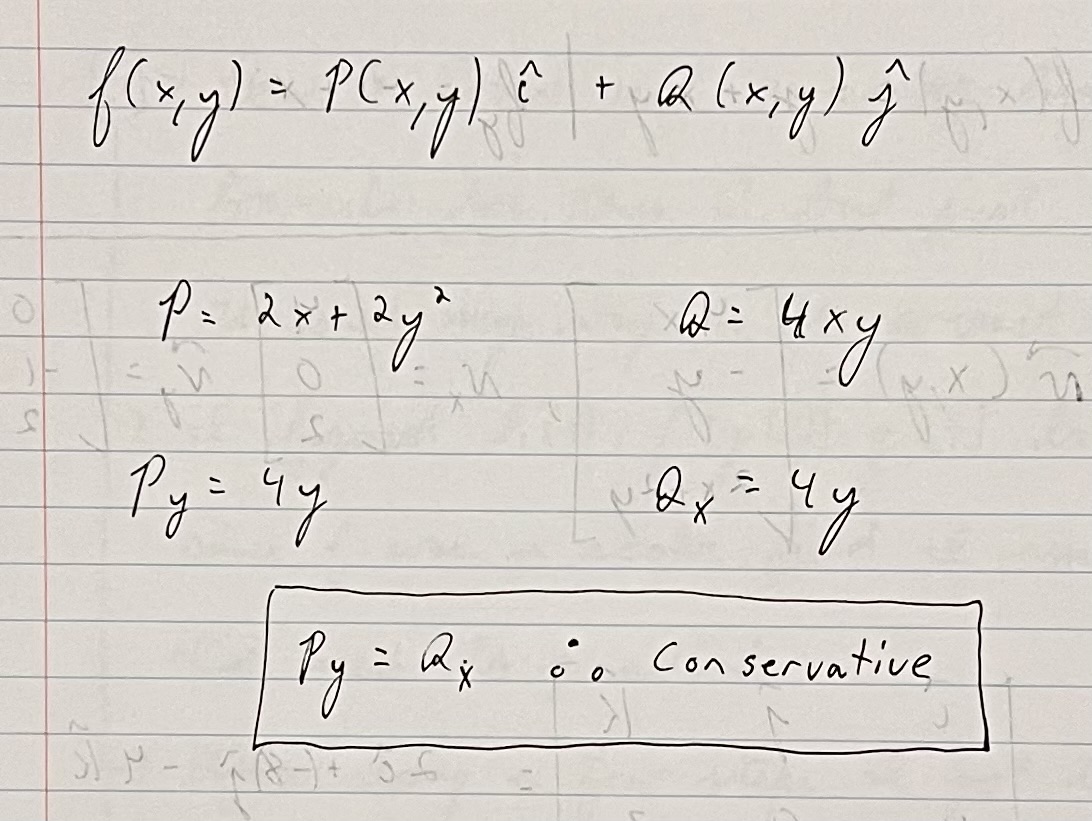 f(x,y) = P(x,y) î + Q(x,y) ĵ
P = 2x + 2y² Q = 4xy
Py = 4y Qx = 4y
Py = Qx ∴ Conservative